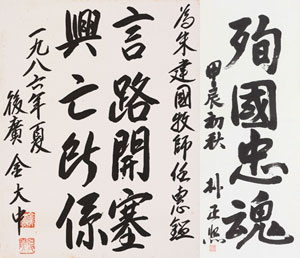 為朱建國牧師任惠鎰
言路開塞
興亡所係
一九八六年夏
後廣 金大中
殉國忠魂
甲辰初秋 朴正熙